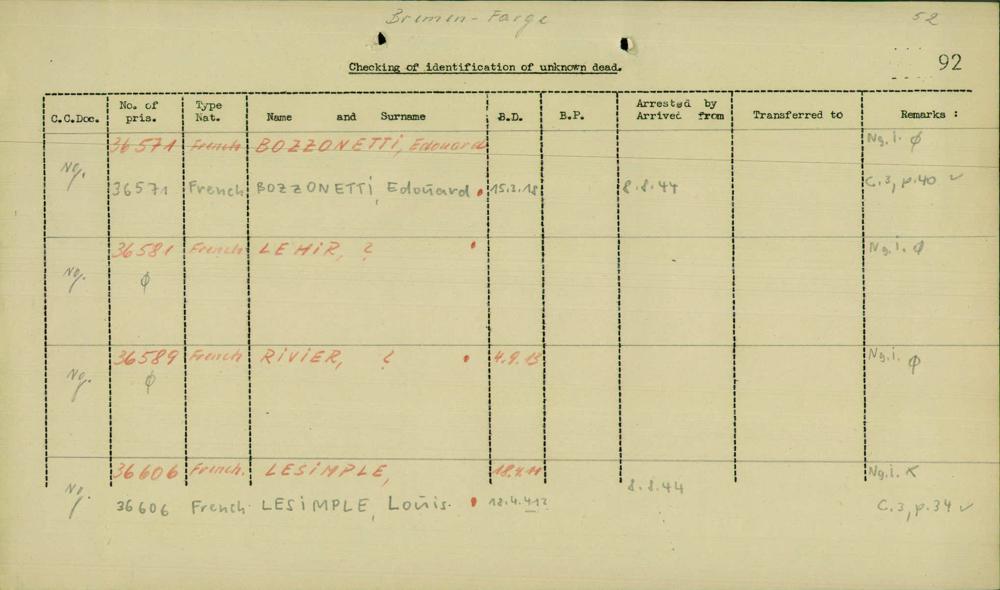 Bremen-Farge 52
Checking of identification of unknown dead. 92
C.C.Doc. No. of pris. Type Nat. Name and Surname B.D. B.P. Arrested by Arrived from Transferred to Remarks :
36571 French BOZZONETTI, Edouard Ng.i. ϕ
Ng.
36571 French BOZZONETTI, Edoŭard 15.2.18 8.8.44 C.3, p.40 ✓
36581 French LEHIR, ? Ng.i. ϕ
Ng. ϕ
36589 French RIVIER, ? 4.9.13 Ng.i. ϕ
Ng. ϕ
36606 French. LESIMPLE, 18.4.11 Ng.i. K
Ng. 8.8.44
36606 French LESIMPLE, Loŭis. C.3, p.34 ✓